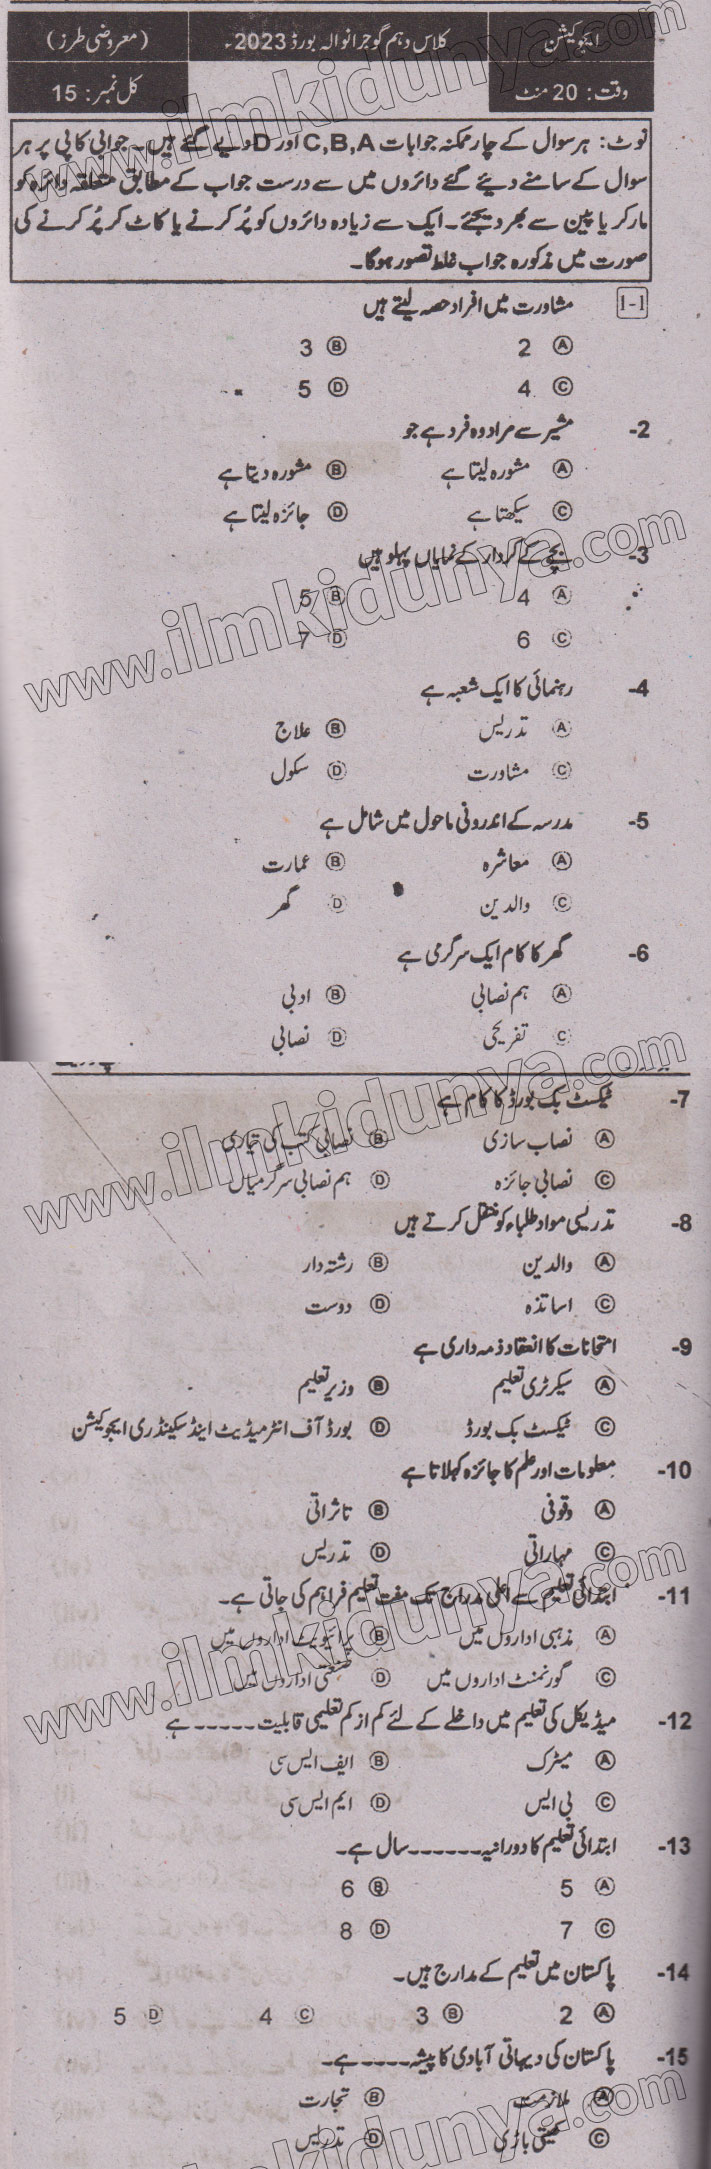 ایجوکیشن
کلاس دہم گوجرانوالہ بورڈ 2023ء
(معروضی طرز)
وقت: 20 منٹ
کل نمبر: 15
نوٹ: ہر سوال کے چار ممکنہ جوابات C,B,A اور D دیے گئے ہیں۔ جوابی کاپی پر ہر
سوال کے سامنے دیئے گئے دائروں میں سے درست جواب کے مطابق متعلقہ دائرہ کو
مارکر یا پین سے بھر دیجئے۔ ایک سے زیادہ دائروں کو پُر کرنے یا کاٹ کر پُر کرنے کی
صورت میں مذکورہ جواب غلط تصور ہوگا۔
1-1 مشاورت میں افراد حصہ لیتے ہیں
Ⓐ 2 Ⓑ 3
Ⓒ 4 Ⓓ 5
2- مشیر سے مراد وہ فرد ہے جو
Ⓐ مشورہ لیتا ہے Ⓑ مشورہ دیتا ہے
Ⓒ سیکھتا ہے Ⓓ جائزہ لیتا ہے
3- بچے کے کردار کے نمایاں پہلو ہیں
Ⓐ 4 Ⓑ 5
Ⓒ 6 Ⓓ 7
4- رہنمائی کا ایک شعبہ ہے
Ⓐ تدریس Ⓑ علاج
Ⓒ مشاورت Ⓓ سکول
5- مدرسہ کے اندرونی ماحول میں شامل ہے
Ⓐ معاشرہ Ⓑ عمارت
Ⓒ والدین Ⓓ گھر
6- گھر کا کام ایک سرگرمی ہے
Ⓐ ہم نصابی Ⓑ ادبی
Ⓒ تفریحی Ⓓ نصابی
7- ٹیکسٹ بک بورڈ کا کام ہے
Ⓐ نصاب سازی Ⓑ نصابی کتب کی تیاری
Ⓒ نصابی جائزہ Ⓓ ہم نصابی سرگرمیاں
8- تدریسی مواد طلباء کو منتقل کرتے ہیں
Ⓐ والدین Ⓑ رشتہ دار
Ⓒ اساتذہ Ⓓ دوست
9- امتحانات کا انعقاد ذمہ داری ہے
Ⓐ سیکرٹری تعلیم Ⓑ وزیر تعلیم
Ⓒ ٹیکسٹ بک بورڈ Ⓓ بورڈ آف انٹرمیڈیٹ اینڈ سیکینڈری ایجوکیشن
10- معلومات اور علم کا جائزہ کہلاتا ہے
Ⓐ وقوفی Ⓑ تاثراتی
Ⓒ مہاراتی Ⓓ تدریس
11- ابتدائی تعلیم سے اعلیٰ مدراج تک مفت تعلیم فراہم کی جاتی ہے۔
Ⓐ مذہبی اداروں میں Ⓑ پرائیویٹ اداروں میں
Ⓒ گورنمنٹ اداروں میں Ⓓ صنعتی اداروں میں
12- میڈیکل کی تعلیم میں داخلے کے لئے کم از کم تعلیمی قابلیت ----- ہے
Ⓐ میٹرک Ⓑ ایف ایس سی
Ⓒ بی ایس Ⓓ ایم ایس سی
13- ابتدائی تعلیم کا دورانیہ ------ سال ہے۔
Ⓐ 5 Ⓑ 6
Ⓒ 7 Ⓓ 8
14- پاکستان میں تعلیم کے مدارج ہیں۔
Ⓐ 2 Ⓑ 3 Ⓒ 4 Ⓓ 5
15- پاکستان کی دیہاتی آبادی کا پیشہ ---- ہے۔
Ⓐ ملازمت Ⓑ تجارت
Ⓒ کھیتی باڑی Ⓓ تدریس
www.ilmkidunya.com
www.ilmkidunya.com
www.ilmkidunya.com
www.ilmkidunya.com